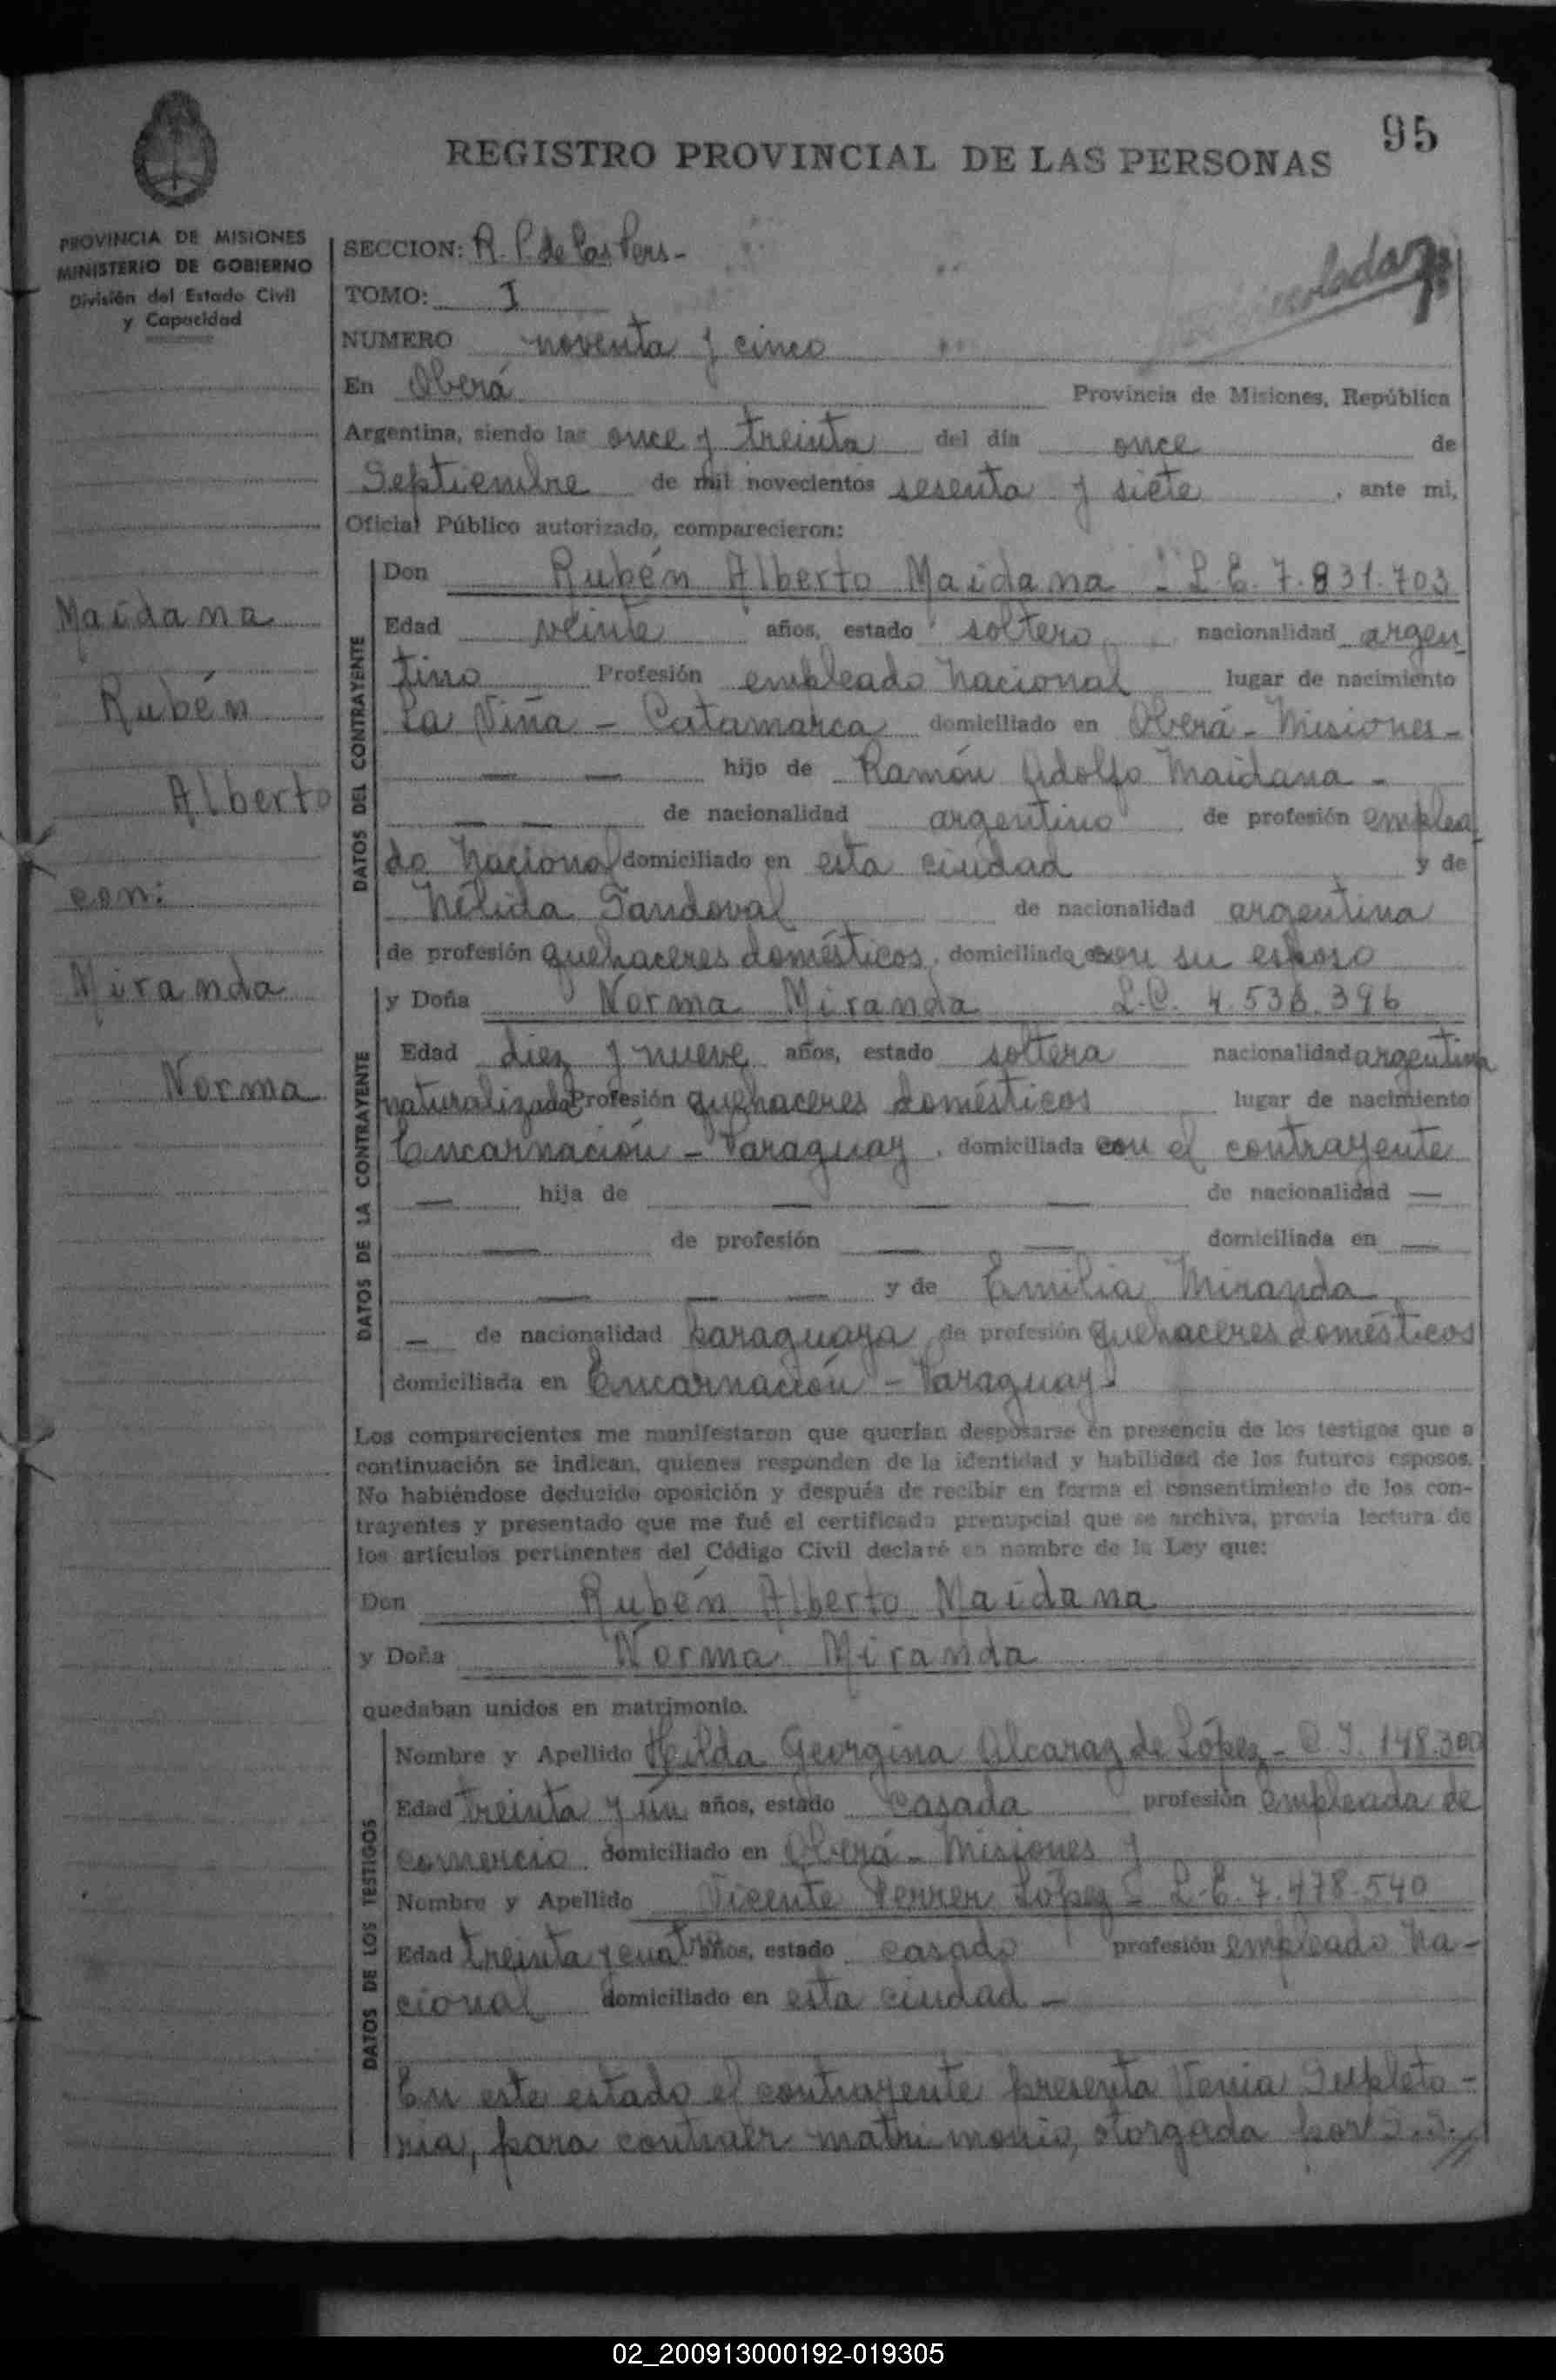 95
REGISTRO PROVINCIAL DE LAS PERSONAS
PROVINCIA DE MISIONES
MINISTERIO DE GOBIERNO
División del Estado Civil
y Capacidad
SECCION: R. P. de las Pers-
TOMO: I
NUMERO noventa y cinco
En Oberá Provincia de Misiones, República
Argentina, siendo las once y treinta del día once de
Septiembre de mil novecientos sesenta y siete, ante mi,
Oficial Público autorizado, comparecieron:
Maidana
Rubén
Alberto
con:
Miranda
Norma
DATOS DEL CONTRAYENTE
Don Rubén Alberto Maidana - L.E. 7.831.703
Edad veinte años, estado soltero nacionalidad argen
tino Profesión empleado nacional lugar de nacimiento
La Viña - Catamarca domiciliado en Oberá - Misiones -
— — hijo de Ramón Adolfo Maidana -
— — de nacionalidad argentino de profesión emplea
do nacional domiciliado en esta ciudad y de
Nélida Sandoval de nacionalidad argentina
de profesión quehaceres domésticos, domiciliada con su esposo
DATOS DE LA CONTRAYENTE
y Doña Norma Miranda L.C. 4.536.396
Edad diez y nueve años, estado soltera nacionalidad argentina
naturalizada Profesión quehaceres domésticos lugar de nacimiento
Encarnación - Paraguay, domiciliada con el contrayente
— hija de — — — de nacionalidad —
— de profesión — — domiciliada en —
— — — y de Emilia Miranda
— de nacionalidad paraguaya de profesión quehaceres domésticos
domiciliada en Encarnación - Paraguay.
Los comparecientes me manifestaron que querían desposarse en presencia de los testigos que a
continuación se indican, quienes responden de la identidad y habilidad de los futuros esposos.
No habiéndose deducido oposición y después de recibir en forma el consentimiento de los con-
trayentes y presentado que me fué el certificado prenupcial que se archiva, previa lectura de
los artículos pertinentes del Código Civil declaré en nombre de la Ley que:
Don Rubén Alberto Maidana
y Doña Norma Miranda
quedaban unidos en matrimonio.
DATOS DE LOS TESTIGOS
Nombre y Apellido Hilda Georgina Alcaraz de López - C.I. 148.300
Edad treinta y un años, estado casada profesión empleada de
comercio domiciliado en Oberá - Misiones y
Nombre y Apellido Vicente Ferrer López - L.E. 7.478.540
Edad treinta y cuatro años, estado casado profesión empleado na-
cional domiciliado en esta ciudad -
En este estado el contrayente presenta Venia Supleto-
ria, para contraer matrimonio, otorgada por S.S.//
02_200913000192-019305